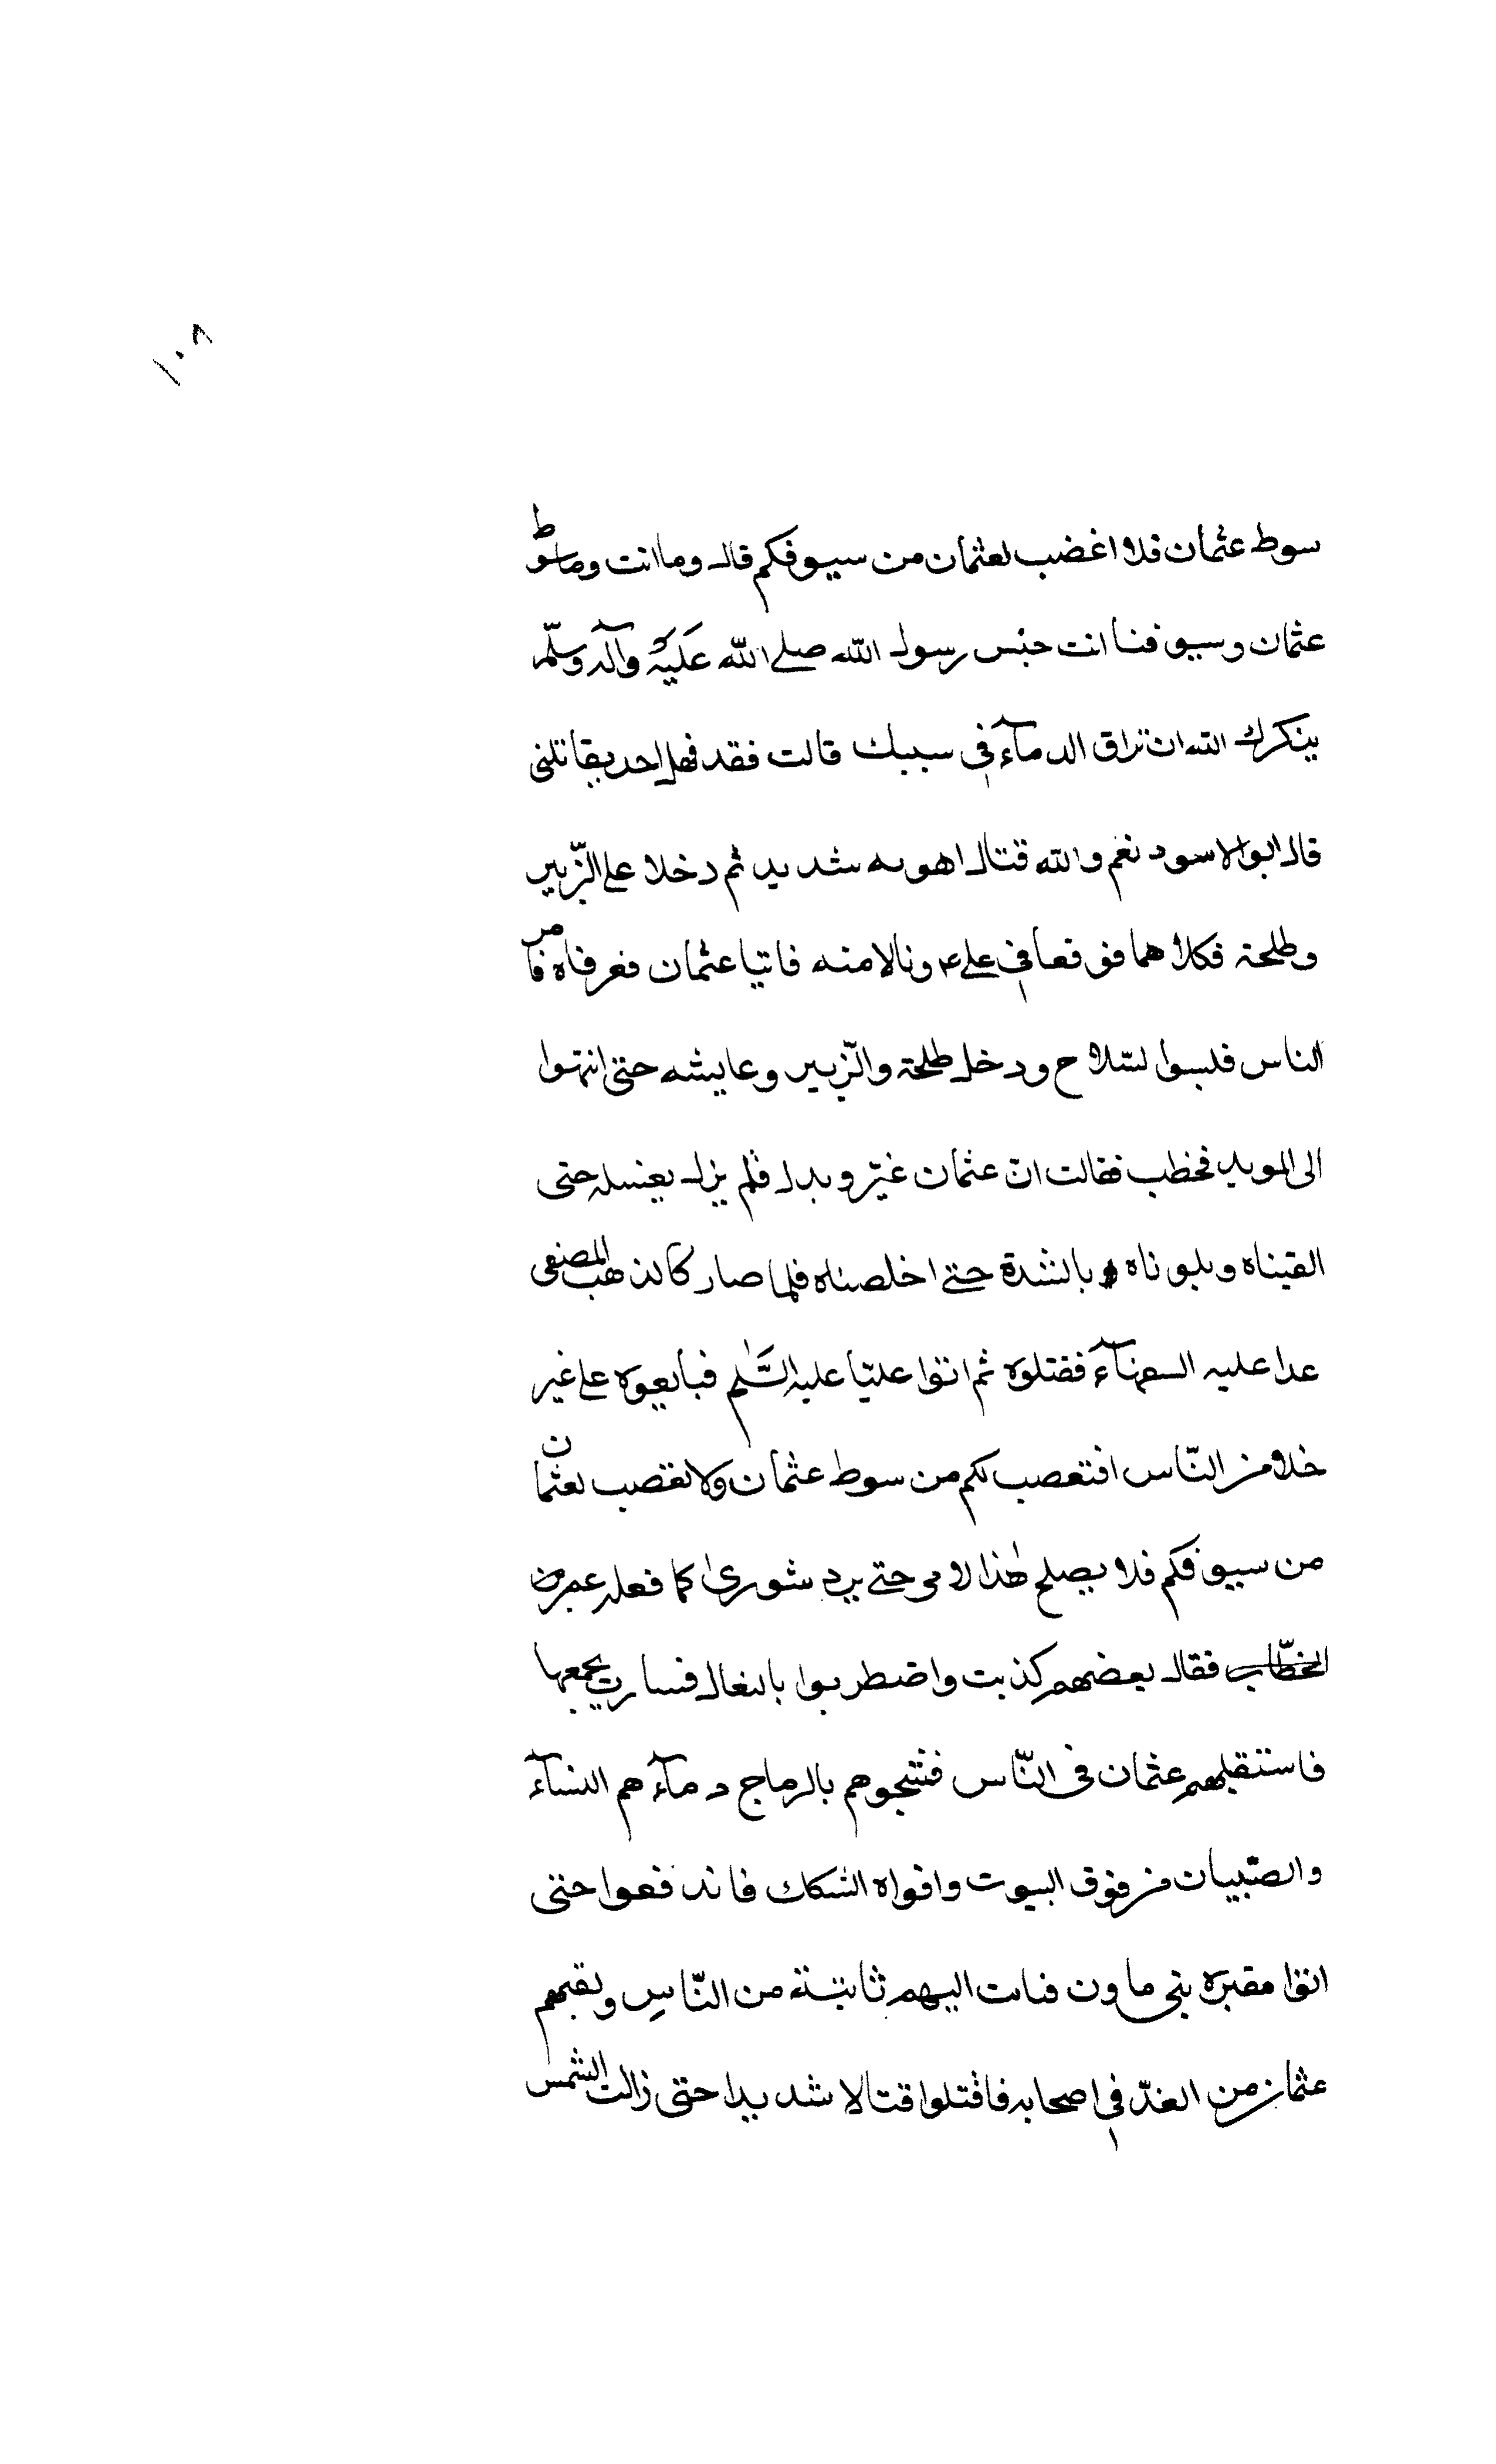 ١٠٨
سوط عثمان فلا اغضب لعثمان من سيوفكم قال وما انت وما سوط
عثمان وسيوفنا انت حبس رسول الله صلى الله عليه وآله وسلّم
يذكرك الله ان تراق الدمآء في سببك قالت فقد فهل احد يقاتلنى
قال ابو الاسود نعم والله قتال اهونه شديد ثم دخلا على الزّبير
وطلحة فكلاهما فوقعا في على ع ونالا منه فاتيا عثمان فعرفاه فامر
الناس فلبسوا لسّلاح ودخل طلحة والزّبير وعايشه حتى انتهوا
الى الموبد فخطب فقالت انّ عثمان غيّر وبدل فلم يزل يغسله حتى
القيناه وبلوناه وبالشدة حتى اخلصناه فلما صار كالذهب المصفى
عدا عليه السفهآء فقتلوه ثم اتوا عليّا عليه السّلم فبايعوه على غير
خلا من النّاس افتعصب لكم من سوط عثمان ولا نغصب لعثمان
من سيوفكم فلا يصلح هذا لامر حتى يرد شورى كما فعله عمر بن
الخطّاب فقال بعضهم كذبت واضطربوا بالنعال فسارت بجمعها
فاستقبلهم عثمان فى النّاس فشجوهم بالرماح دمآءهم النسآء
والصّبيان من فوق البيوت وافواه الشكك فاندفعوا حتى
اتوا مقبرة بنى ماون فباتت اليهم ثابتة من النّاس ولقيهم
عثمان من الغدّ في اصحابه فاقتلوا قتالا شديدا حتى زالت الشمس